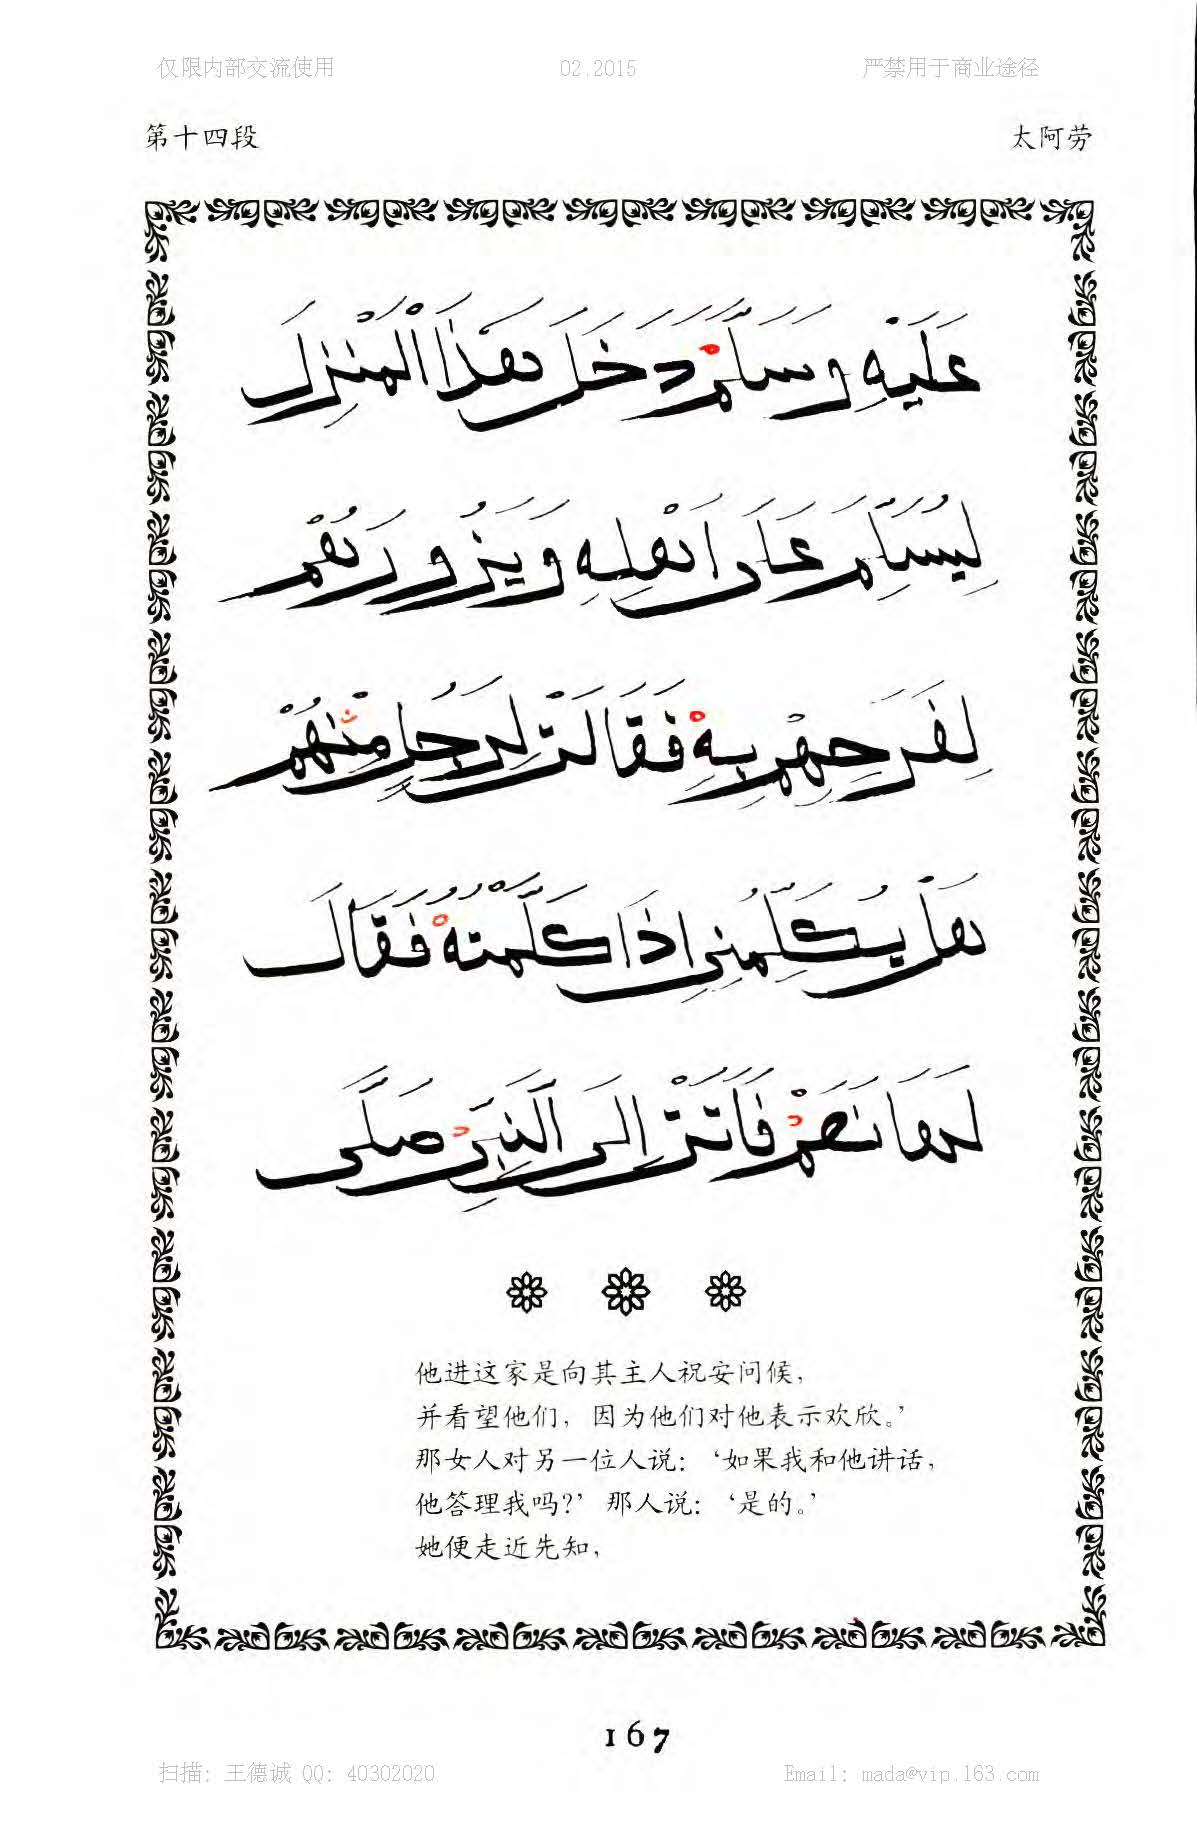 仅限内部交流使用 02.2015 严禁用于商业途径
第十四段 太阿劳
عَلَيْهِ وَسَلَّمَ دَخَلَ هَذَا الْمَنْزِلَ
لِيُسَلِّمَ عَلَى اَهْلِهِ وَيَزُورَهُمْ
لِفَرَحِهِمْ بِهِ فَقَالَتْ لِرَجُلٍ مِنْهُمْ
هَلْ يُكَلِّمُنِي اِذَا كَلَّمْتُهُ فَقَالَ
لَهَا نَعَمْ فَاَتَتْ اِلَى النَّبِيِّ صَلَّى
他进这家是向其主人祝安问候，
并看望他们，因为他们对他表示欢欣。’
那女人对另一位人说：‘如果我和他讲话，
他答理我吗？’那人说：‘是的。’
她便走近先知，
167
扫描: 王德诚 QQ: 40302020 Email: mada@vip.163.com